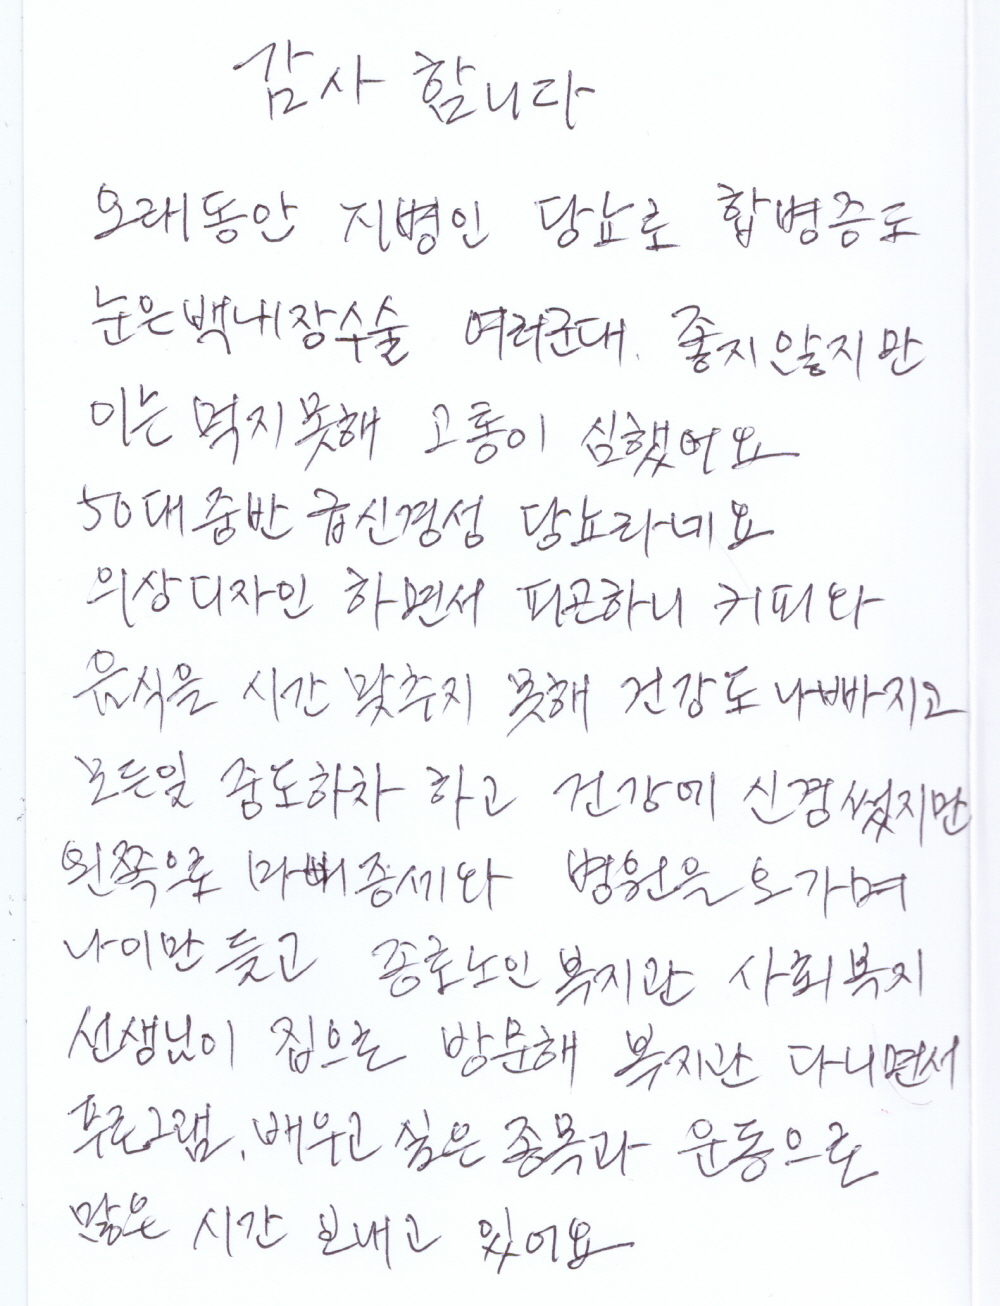 감사 합니다
오래동안 지병인 당뇨로 합병증도
눈은백내장수술 여러군대. 좋지않지만
이는 먹지못해 고통이 심했어요
50대중반 급신경성 당뇨라네요
의상디자인 하면서 피곤하니 커피와
음식을 시간 맞추지 못해 건강도나빠지고
모든일 중도하차 하고 건강에 신경썼지만
왼쪽으로 마삐증세와 병원을오가며
나이만 듲고 종로노인복지관 사회복지
선생님이 집으로 방문해 복지관 다니면서
푸로그램, 배우고 싶은종목과 운동으로
많은 시간 보내고 있어요